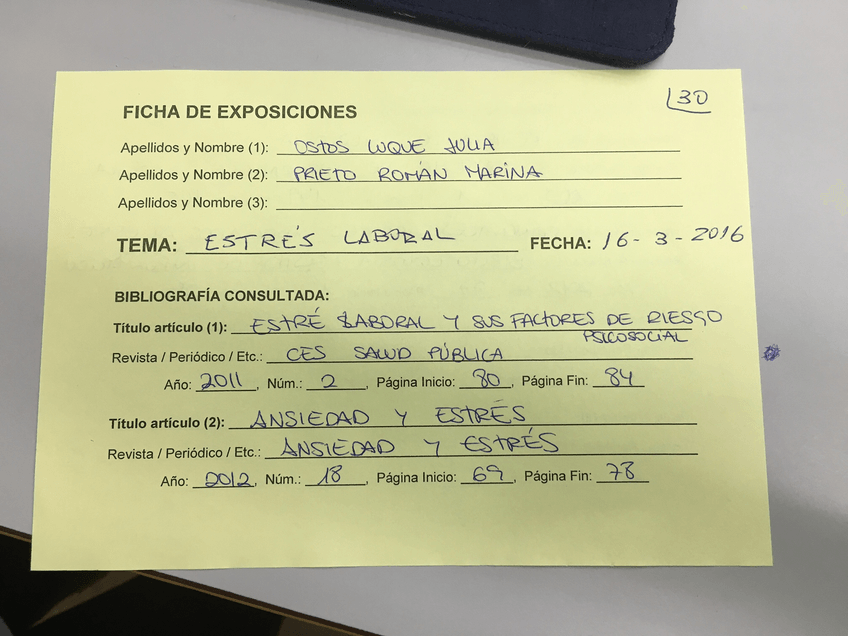 30
FICHA DE EXPOSICIONES
Apellidos y Nombre (1): OSTOS LUQUE JULIA
Apellidos y Nombre (2): PRIETO ROMÁN MARINA
Apellidos y Nombre (3):
TEMA: ESTRÉS LABORAL FECHA: 16-3-2016
BIBLIOGRAFÍA CONSULTADA:
Título artículo (1): ESTRÉ LABORAL Y SUS FACTORES DE RIESGO
PSICOSOCIAL
Revista / Periódico / Etc.: CES SALUD PÚBLICA
Año: 2011, Núm.: 2, Página Inicio: 80, Página Fin: 84
Título artículo (2): ANSIEDAD Y ESTRÉS
Revista / Periódico / Etc.: ANSIEDAD Y ESTRÉS
Año: 2012, Núm.: 18, Página Inicio: 69, Página Fin: 78